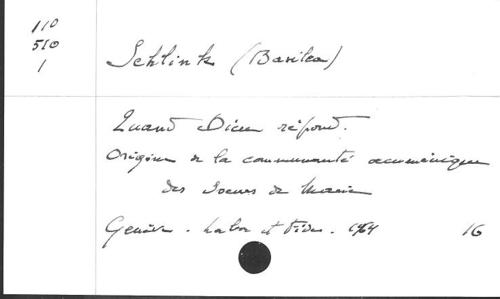 110
510
1
Schlink (Basilea)
Quand Dieu répond.
Origine de la communauté œcuménique
des Soeurs de Marie
Genève. Labor et Fides. 1964
16